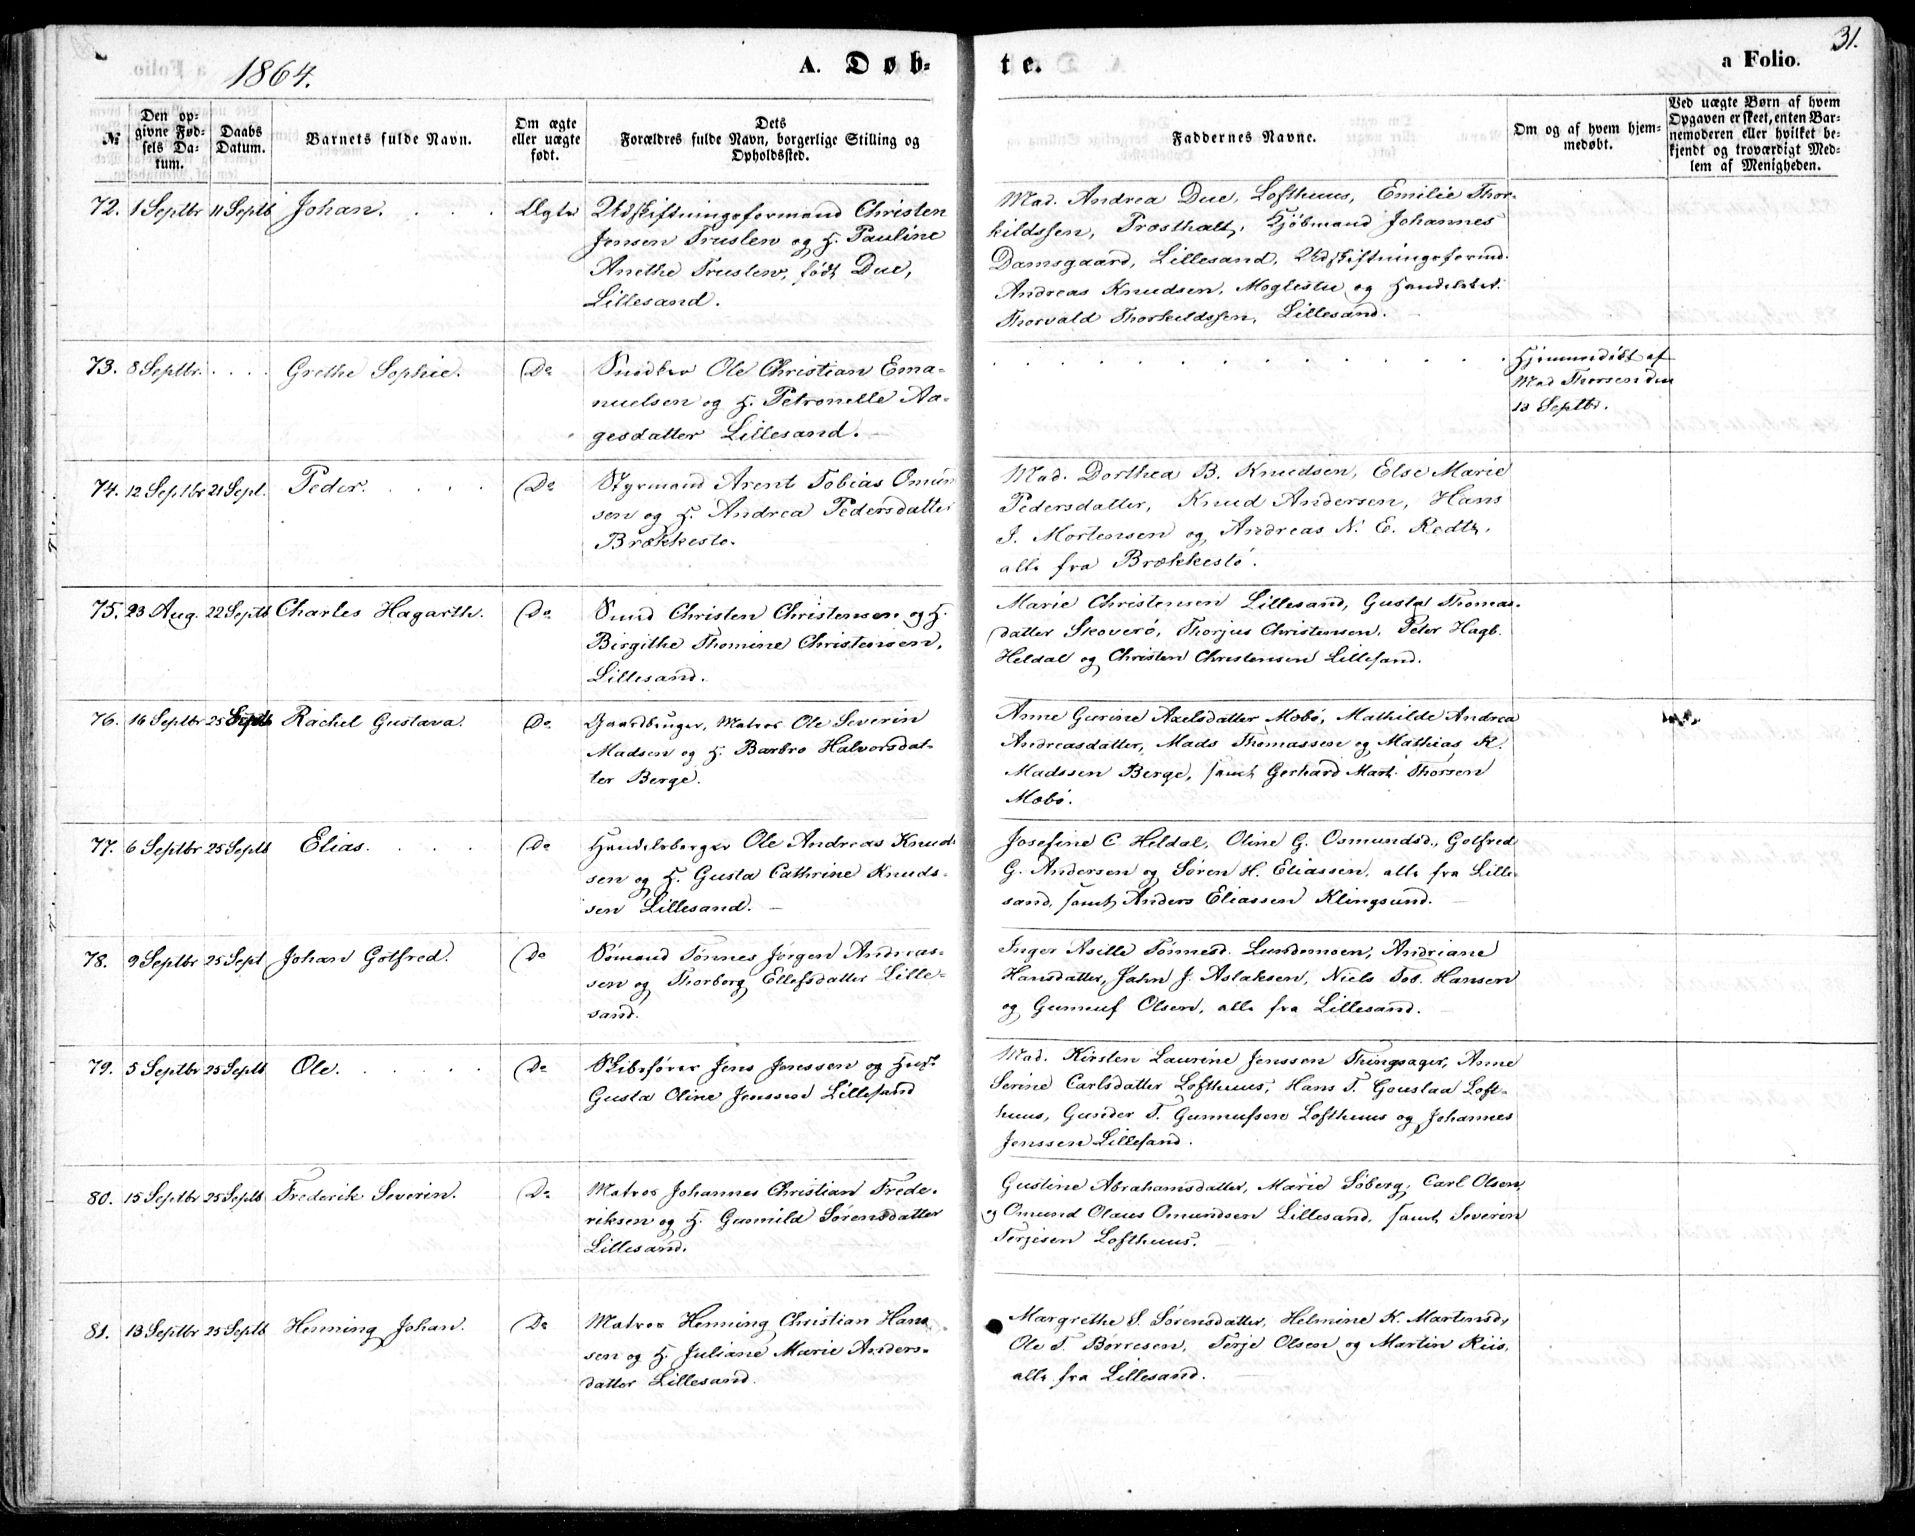 1864.
A. Døb-
te.
a Folio.
31.
№
Den op-
givne Fød-
sels Da-
tum.
Daabs
Datum.
Barnets fulde Navn.
Om ægte
eller uægte
født.
Dets
Forældres fulde Navn, borgerlige Stilling og
Opholdssted.
Faddernes Navne.
Om og af hvem hjem-
medøbt.
Ved uægte Børn af hvem
Opgaven er skeet, enten Bar-
nemoderen eller hvilket be-
kjendt og troværdigt Med-
lem af Menigheden.
72. 1 Septbr 11 Septb Johan. Ægte
Udskiftningsformand Christen
Jensen Truslen og H. Pauline
Anethe Truslen, født Due,
Lillesand.
Mad. Andrea Due, Lofthuus, Emilie Thor-
kildssen, Prosthalt, Kjøbmand Johannes
Damsgaard, Lillesand, Udskiftningsformd.
Andreas Knudsen, Moglestu og
Thorvald Thorkildssen, Lillesand.
73. 8 Septbr. Grethe Sophie. Do
Ole Christian Ema-
nuelsen og H. Petronelle Aa-
gesdatter Lillesand.
Hjemmedøbt af
Mad Thorsen den
13 Septbr.
74. 12 Septbr 21 Sept. Peder. Do
Styrmand Arent Tobias Omun
sen og H. Andrea Pedersdatter
Brækkestø.
Mad. Dorthea B. Knudsen, Else Marie
Pedersdatter, Knud Andersen, Hans
J. Mortensen og Andreas N. E. Redtz,
alle fra Brækkestø.
75. 23 Aug. 22 Septb Charles Hagarth. Do
Smed Christen Christensen og H.
Birgithe Thomine Christensen,
Lillesand.
Marie Christensen Lillesand, Gusta Thomas-
datter Skoverø, Thorjus Christensen, Peter Hagb.
Heldal og Christen Christensen Lillesand.
76. 16 Septbr 25 Septb Rachel Gustava. Do
Gaardbruger, Matros Ole Severin
Madsen og H. Barbro Halvorsdat-
ter Berge.
Anne Gurine Axelsdatter Mæbø, Mathilde Andrea
Andreasdatter, Mads Thomassen og Mathias K.
Madssen Berge, samt Gerhard Mart. Thorsen
Mæbø.
77. 6 Septbr 25 Septb Elias. Do
Handelsborger Ole Andreas Knud-
sen og H. Gusta Cathrine Knuds-
sen Lillesand.
Josefine C Heldal, Oline G. Osmundsd., Gotfred
G. Andersen og Søren H. Eliassen, alle fra Lille-
sand, samt Anders Eliassen Klingsund.
78. 9 Septbr 25 Sept Johan Gotfred. Do
Sømand Tønnes Jørgen Andreas-
sen og Thorborg Ellefsdatter Lille-
sand.
Inger Asille Tønnesd. Lundemoen, Andriane
Hansdatter, Jahn J. Aslaksen, Niels Tob. Hansen
og Gunnuf Olsen, alle fra Lillesand.
79. 5 Septbr 25 Septb Ole. Do
Skibsfører Jens Jenssen og Hust.
Gusta Oline Jenssen Lillesand
Mad. Kirsten Laurine Jenssen Thingsager, Anne
Serine Carlsdatter Lofthuus, Hans T. Gouslaa Loft-
huus, Gunder T. Gunnufsen Lofthuus og Johannes
Jenssen Lillesand.
80. 15 Septbr 25 Septb Frederik Severin. Do
Matros Johannes Christian Frede-
riksen og H. Gunnild Sørensdatter
Lillesand.
Gustine Abrahamsdatter, Marie Søberg, Carl Olsen,
og Omund Olaus Omundsen Lillesand, samt Severin
Terjesen Lofthuus.
81. 13 Septbr 25 Septb Henning Johan. Do
Matros Henning Christian Han-
sen og H. Juliane Marie Anders-
datter Lillesand.
Margrethe S. Sørensdatter, Helmine K. Martinsd,
Ole T. Børresen, Terje Olsen og Martin Riis,
alle fra Lillesand.